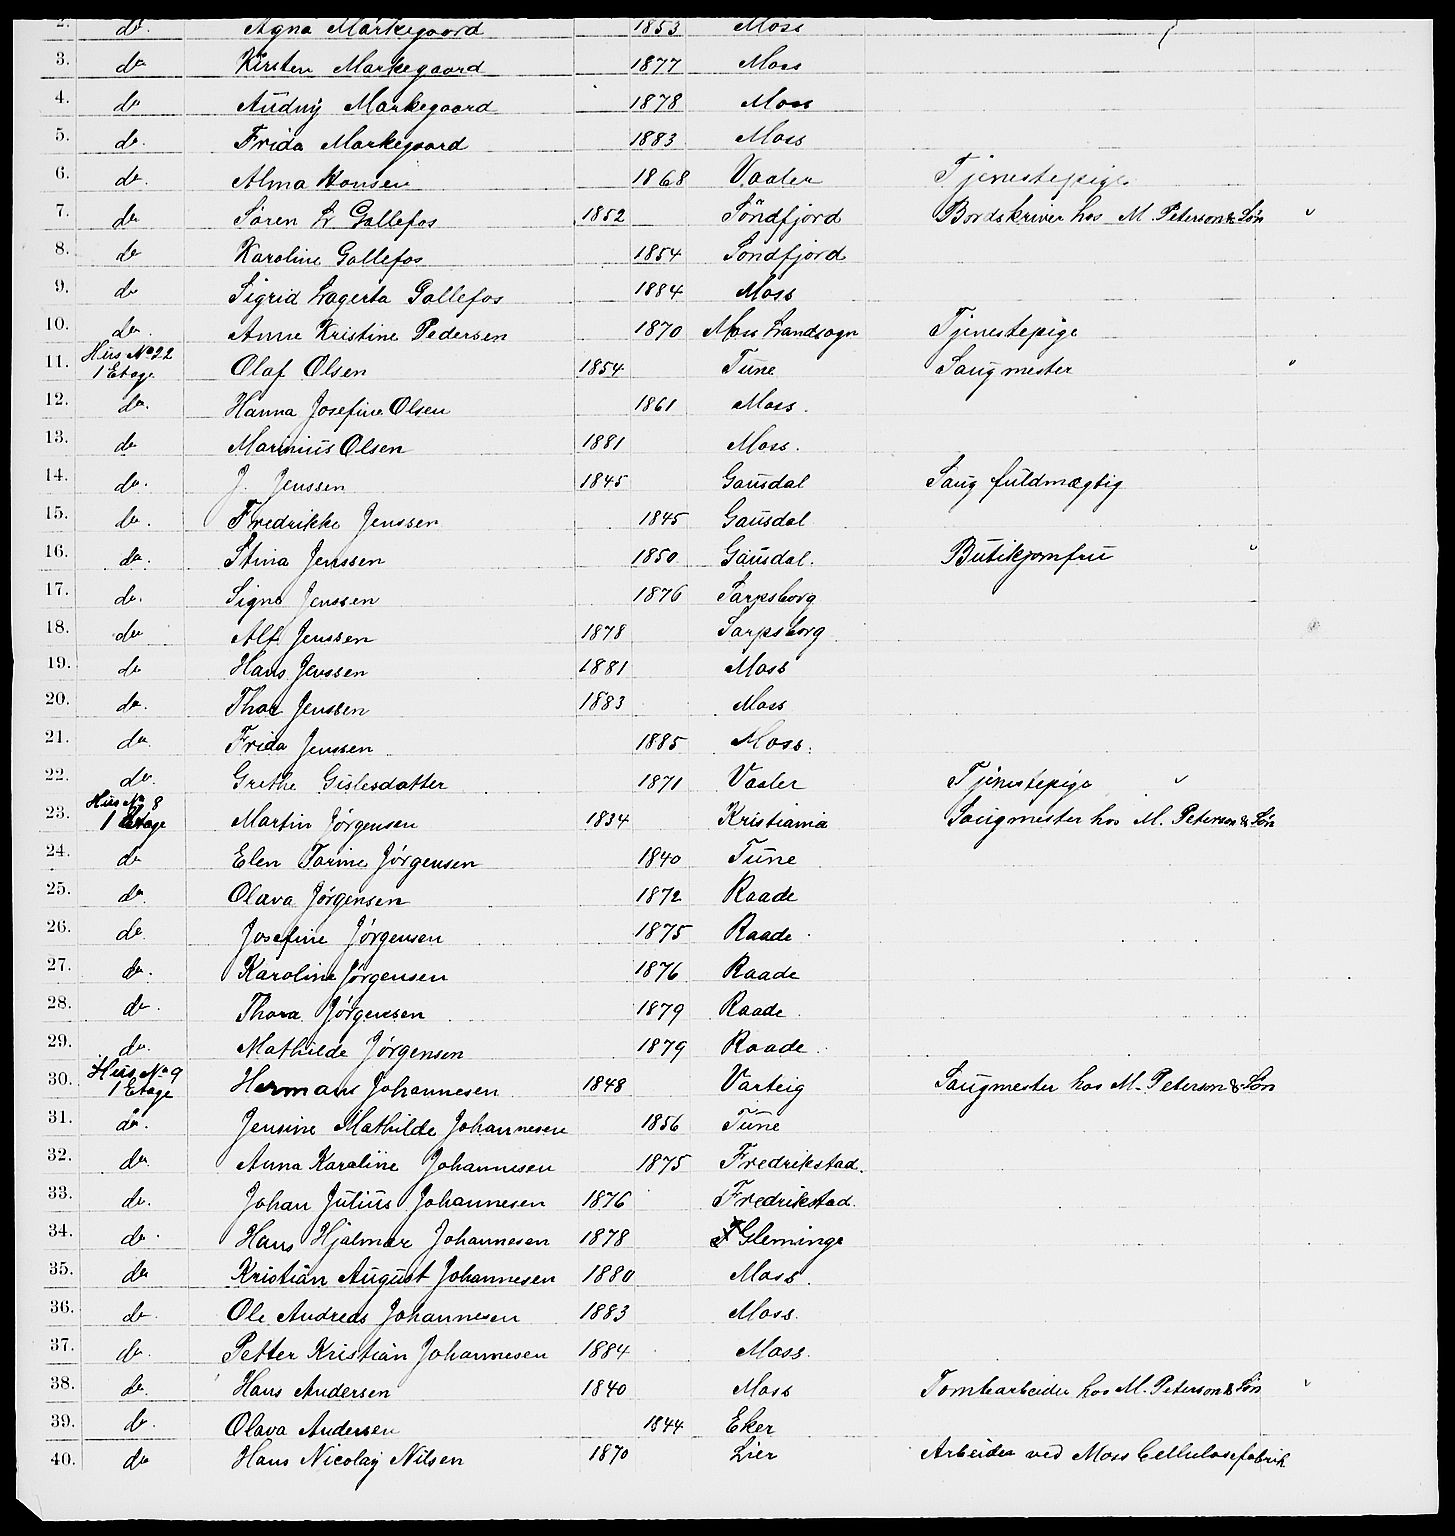 2. do. Agna Markegaard 1853 Moss
3. do Kirsten Markegaard 1877 Moss
4. do Audny Markegaard 1878 Moss
5. do. Frida Markegaard 1883 Moss
6. do. Alma Hansen 1868 Vaaler Tjenestepige
7. do Søren L Gallefos 1852 Söndfjord Bordskriver hos M. Peterson & Søn "
8. do Karoline Gallefos 1854 Söndfjord
9. do Sigrid Lagerta Gallefos 1884 Moss
10. do. Anne Kristine Pedersen 1870 Moss Landsogn Tjenestepige
Hus No 22
11. 1 Etage Olaf Olsen 1854 Tune Saugmester "
12. do. Hanna Josefine Olsen 1861 Moss.
13. do Marinius Olsen 1881 Moss.
14. do. J. Jenssen 1845 Gausdal Saug fuldmægtig
15. do. Fredrikke Jenssen 1845 Gausdal
16. do. Stina Jenssen 1850 Gausdal. Butikjomfru "
17. do. Signe Jenssen 1876 Sarpsborg
18. do Alf. Jenssen 1878 Sarpsborg
19. do Hans Jenssen 1881 Moss
20. do. Thor Jenssen 1883 Moss
21. do. Frida Jenssen 1885 Moss.
22. do. Grethe Gislesdatter 1871 Vaaler Tjenestepige "
Hus No 8
23. 1 Etage Martin Jørgensen 1834 Kristiania Saugmester hos M. Peterson & Søn
24. do Elen Torine Jørgensen 1840 Tune
25. do. Olava Jørgensen 1872 Raade
26. do Josefine Jørgensen 1875 Raade.
27. do. Karoline Jørgensen 1876 Raade
28. do. Thora Jørgensen 1879 Raade.
29. do. Mathilde Jørgensen 1879 Raade.
Hus No 9
30. 1 Etage Hermans Johannesen 1848 Varteig Saugmester hos M. Peterson & Søn
31. do. Jensine Mathilde Johannesen 1856 Tune
32. do Anna Karaline Johannesen 1875 Fredrikstad.
33. do. Johan Julius Johannesen 1876 Fredrikstad.
34. do. Hans Hjalmar Johannesen 1878 Gleminge
35. do Kristian August Johannesen 1880 Moss.
36. do. Ole Andreas Johannesen 1883 Moss.
37. do. Petter Kristian Johannesen 1884 Moss.
38. do. Hans Andersen 1840 Moss Tomtearbeider hos M. Peterson & Søn "
39. do. Olava Andersen 1844 Eker
40. do Hans Nicolay Nilsen 1870 Lier Arbeider ved Moss Cellulosefabrik